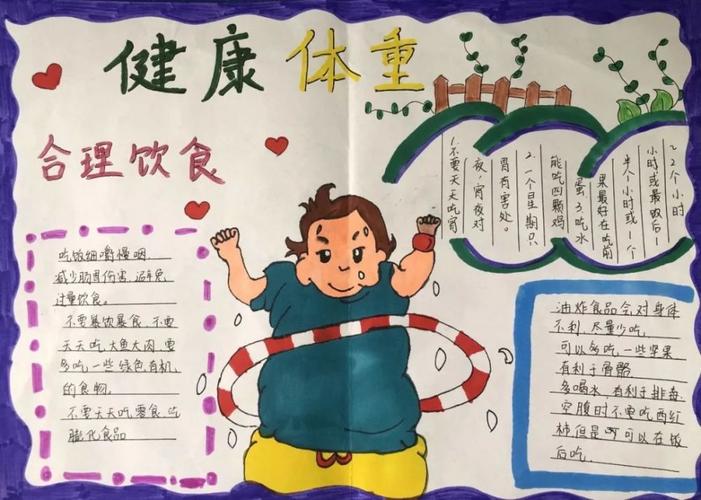 健康体重
合理饮食
1.不要天天吃宵
夜,宵夜对
胃有害处。
2.一个星期只
能吃四颗鸡
蛋3.吃水
果最好在吃前
半个小时或一个
小时或最取后1
~2个小时
吃饭细嚼慢咽
减少肠胃伤害,避免
过量饮食。
不要暴饮暴食、不要
天天吃大鱼大肉,要
多吃一些绿色有机
的食物。
不要天天吃零食,吃
膨化食品
油炸食品会对身体
不利,尽量少吃,
可以多吃一些坚果
有利于骨骼
多喝水,有利于排毒,
空腹时不要吃西红
柿但是可以在饭
后吃.